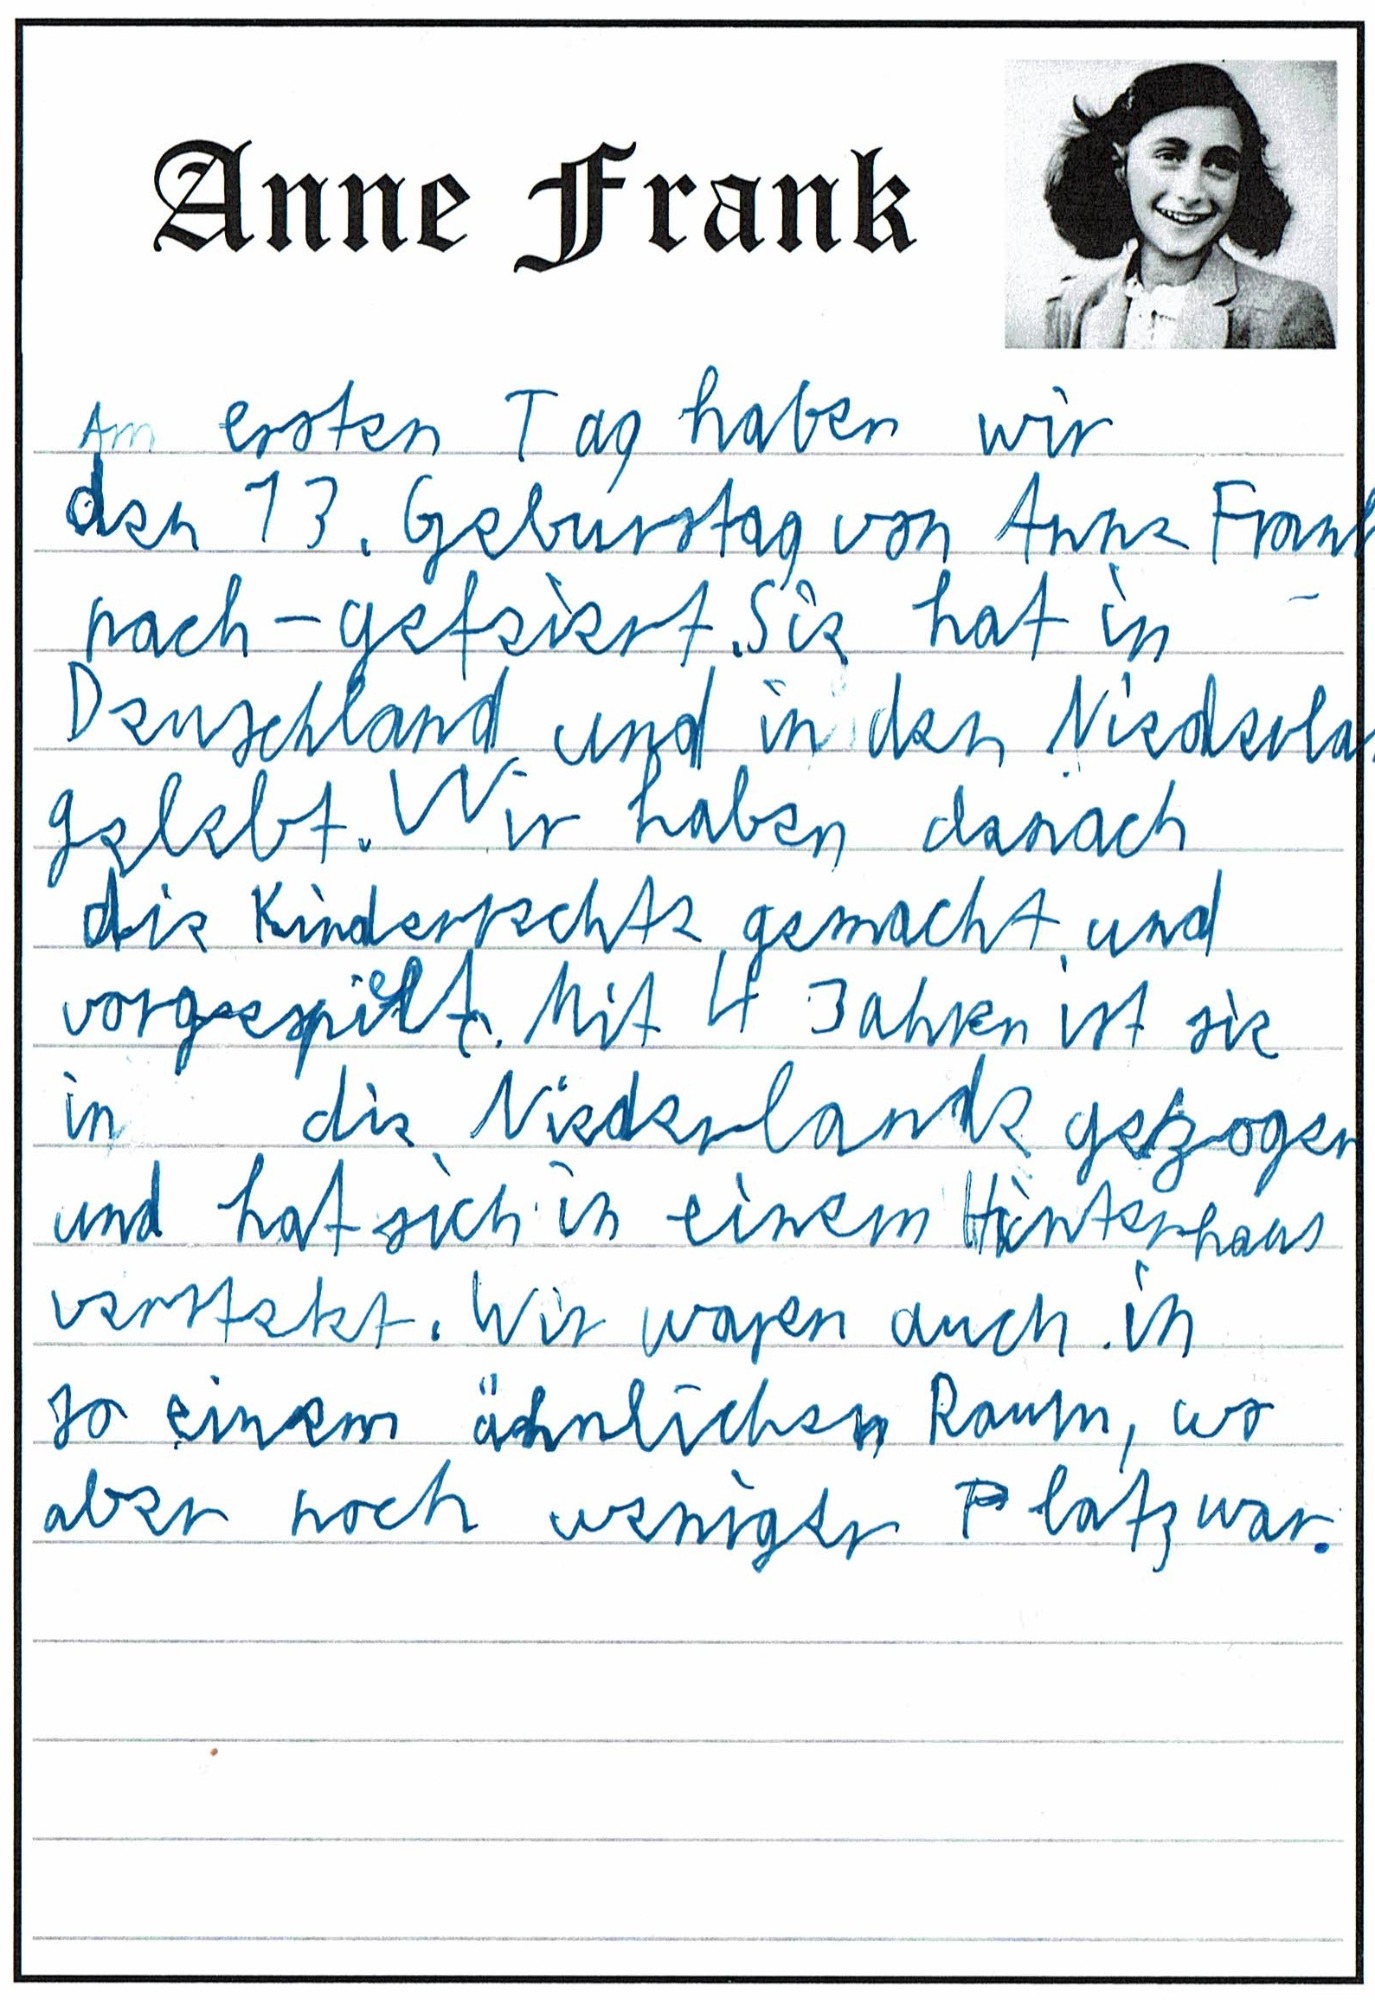 Anne Frank
Am ersten Tag haben wir
den 13. Geburstag von Anne Frank
nach-gefeiert. Sie hat in
Deuschland und in den Niederlan
gelebt. Wir haben danach
die Kinderrechte gemacht und
vorgespielt. Mit 4 Jahren ist sie
in die Niederlande gezogen
und hat sich in einem Hinterhaus
verstekt. Wir waren auch in
so einem ähnlichen Raum, wo
aber noch weniger Platz war.